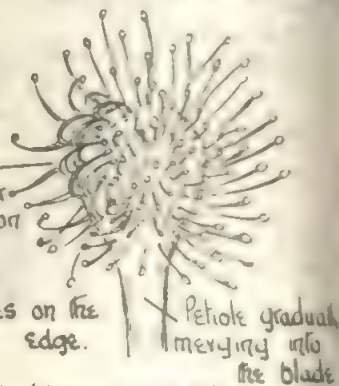 on
es on the
edge.
Petiole gradual
merging into
the blade